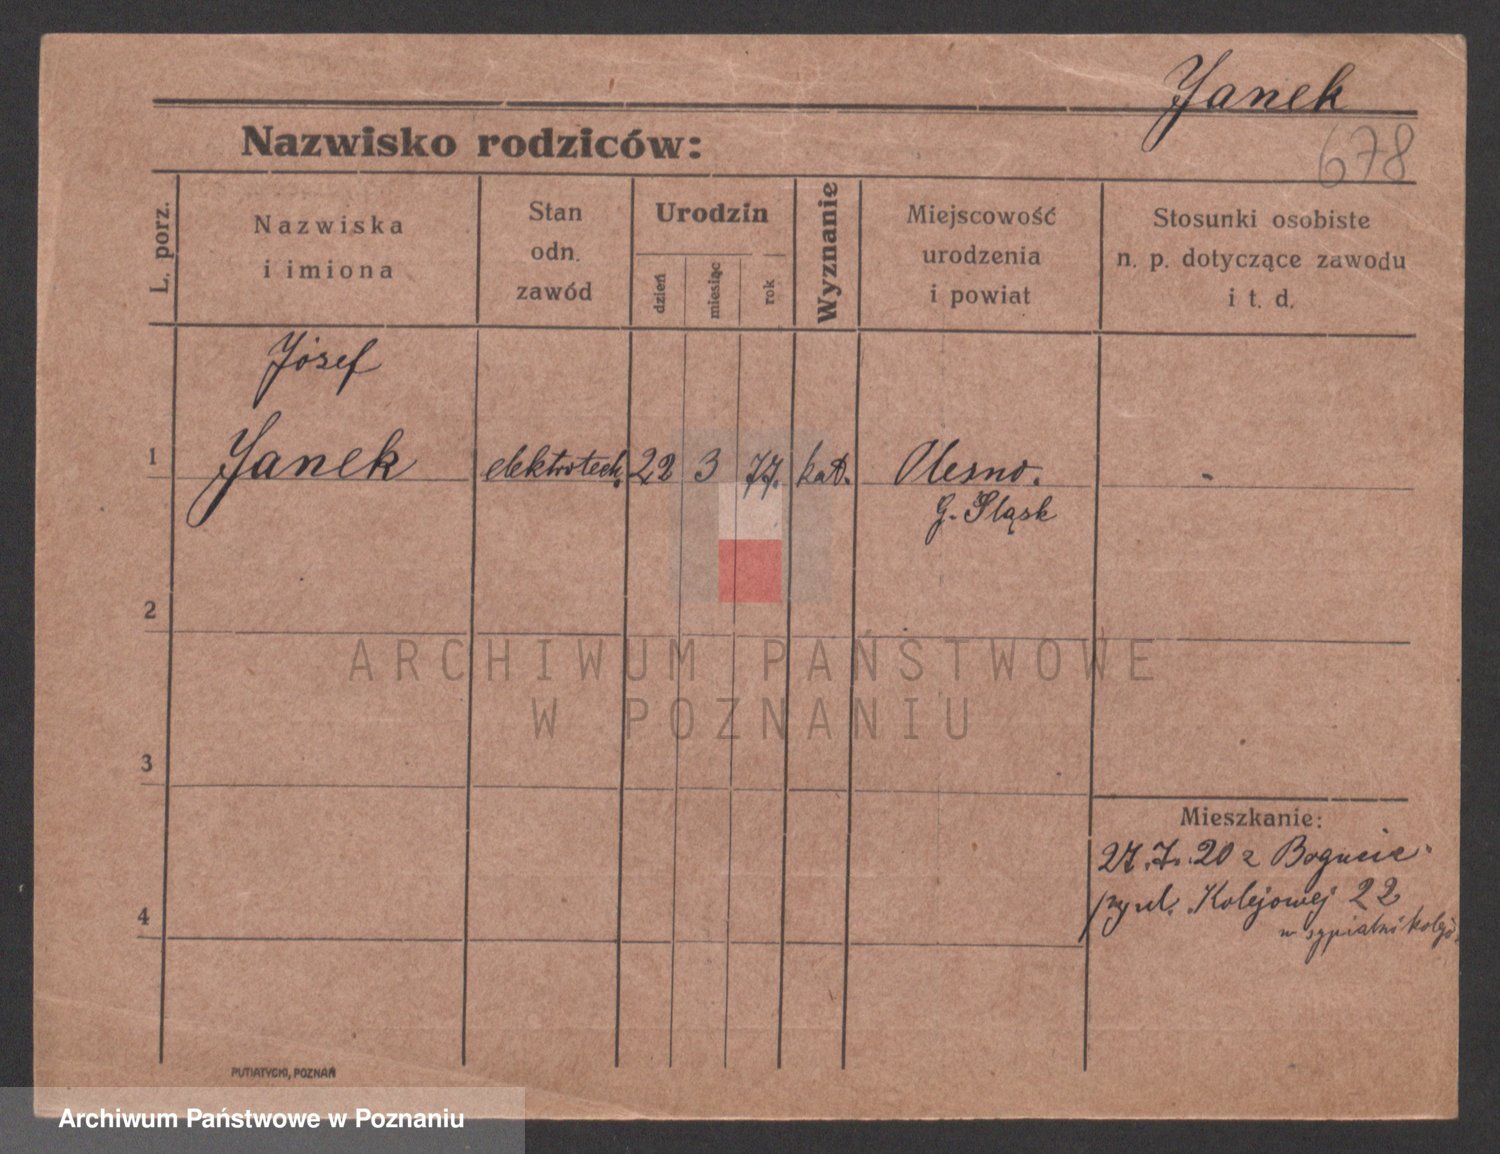 Janek
678
Nazwisko rodziców:
L. porz.
Nazwiska
i imiona
Stan
odn.
zawód
Urodzin
dzień
miesiąc
rok
Wyznanie
Miejscowość
urodzenia
i powiat
Stosunki osobiste
n. p. dotyczące zawodu
i t. d.
Józef
1 Janek elektrotech. 22 3 77. kat. Olesno. -
G. Śląsk
2
ARCHIWUM PAŃSTWOWE
W POZNANIU
3
Mieszkanie:
27.7.20 z Bogucic
przy ul. Kolejowej 22
4
w sypialni kolej.
PUTIATYCKI, POZNAŃ
Archiwum Państwowe w Poznaniu